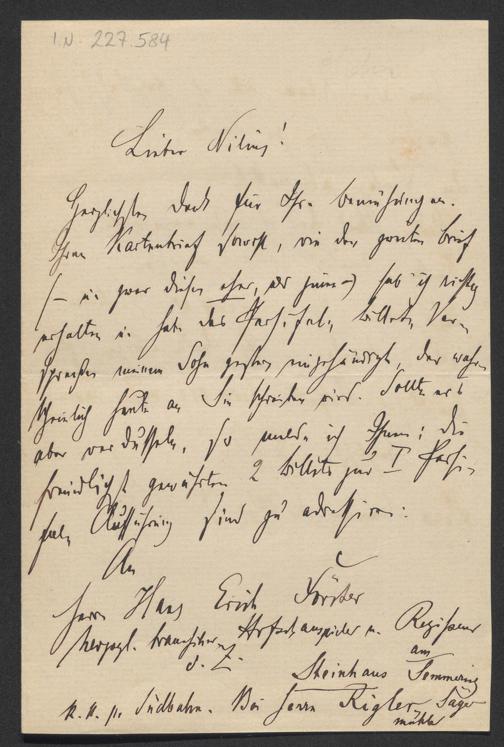 I.N. 227.584
Lieber Nilius!
Herzlichsten Dank für Ihre Bemühungen.
Ihren Kartenbrief sowohl, wie den zweiten Brief
(– u. zwar diesen eher, als jenen –) hab' ich richtig
erhalten u. habe das Parsifal-Billets-Ver-
sprechen meinem Sohn gestern eingehändigt, der wahr-
scheinlich heute an Sie schreiben wird. Sollte er's
aber verdusseln, so melde ich Ihnen: die
freundlichst gewährten 2 Billets zur I Parsi-
fal-Aufführung sind zu adressiren:
An
Herrn Hans Erich Förster
herzogl. Hofschauspieler u. Regisseur
d. Z. Steinhaus am Semmering
k. k. p. Südbahn. Bei Herrn Rigler, Säge-
mühle